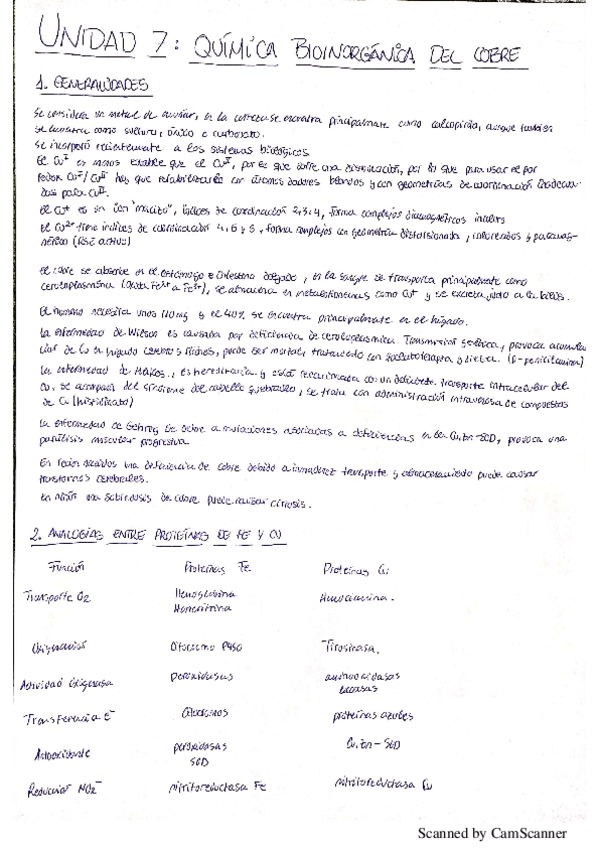 UNIDAD 7: QUÍMICA BIOINORGÁNICA DEL COBRE
1. GENERALIDADES
Se considera un metal de acuñar, en la corteza se encuentra principalmente como calcopirita, aunque también
se encuentra como sulfuro, óxido o carbonato.
Se incorporó recientemente a los sistemas biológicos
El Cu^I es menos estable que el Cu^II, por es que sufre una dismutación, por lo que para usar el par
redox Cu^I/Cu^II hay que estabilizarlo con átomos dadores blandos y con geometrías de coordinación
para Cu^II.
El Cu+ es un ión "macizo", índices de coordinación 2, 3 y 4, forma complejos diamagnéticos incoloros
El Cu2+ tiene índices de coordinación 4, 6 y 5, forma complejos con geometría distorsionada, coloreados y paramag-
nético (RSE activo)
El cobre se absorbe en el estómago e intestino delgado, en la sangre se transporta principalmente como
ceruloplasmina (oxida Fe2+ a Fe3+), se almacena en metalotioneínas como Cu+ y se excreta junto a la bilis.
El humano necesita unos 110 mg y el 40% se encuentra principalmente en el hígado.
La enfermedad de Wilson es causada por deficiencia de ceruloplasmina. Transmisión genética, provoca acumula
ción de Cu en hígado cerebro y riñones, puede ser mortal, tratamiento con quelatoterapia y dieta. (D-penicilamina)
La enfermedad de Menkes, es hereditaria y está relacionada con un deficiente transporte intracelular del
Cu, se acompaña del síndrome del cabello quebradizo, se trata con administración intravenosa de compuestos
de Cu (histidinato)
La enfermedad de Gehrig se debe a mutaciones asociadas a deficiencias en la Cu,Zn-SOD, provoca una
parálisis muscular progresiva.
En recién nacidos una deficiencia de cobre debido a inmadurez transporte y almacenamiento puede causar
trastornos cerebrales.
En niños una sobredosis de cobre puede causar cirrosis.
2. ANALOGÍAS ENTRE PROTEÍNAS DE FE Y CU
Función Proteínas Fe Proteínas Cu
Transporte O2 Hemoglobina Hemocianina.
Hemeritrina
Oxigenación Citocromo P450 Tirosinasa.
Actividad Oxigenasa peroxidasas aminooxidasas
lacasas
Transferencia e- Citocromos proteínas azules
Antioxidante peroxidasas Cu,Zn-SOD
SOD
Reducción NO2- nitritoreductasa Fe nitritoreductasa Cu
Scanned by CamScanner